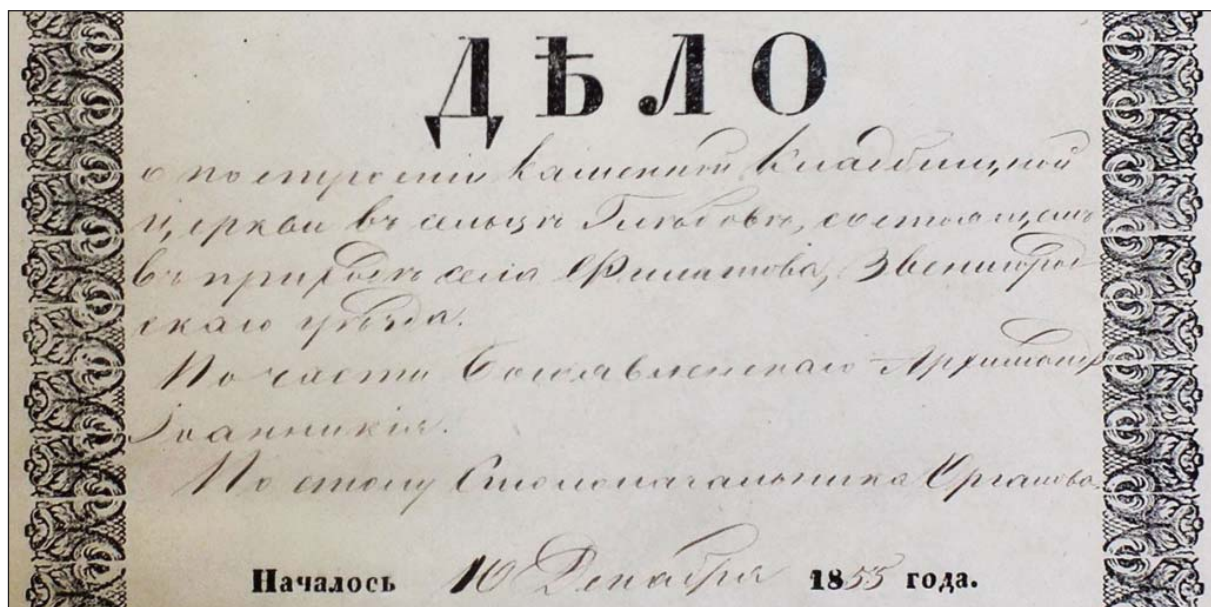 ДѢЛО
о построеніи каменной кладбищной
церкви въ сельцѣ Глѣбовѣ, состоящемъ
въ приходѣ села Филатова, Звенигород-
скаго уѣзда.
По части Богоявленскаго Архимандр
Іоанникія.
По столу Столоначальника Органова.
Началось 10 Декабря 1855 года.